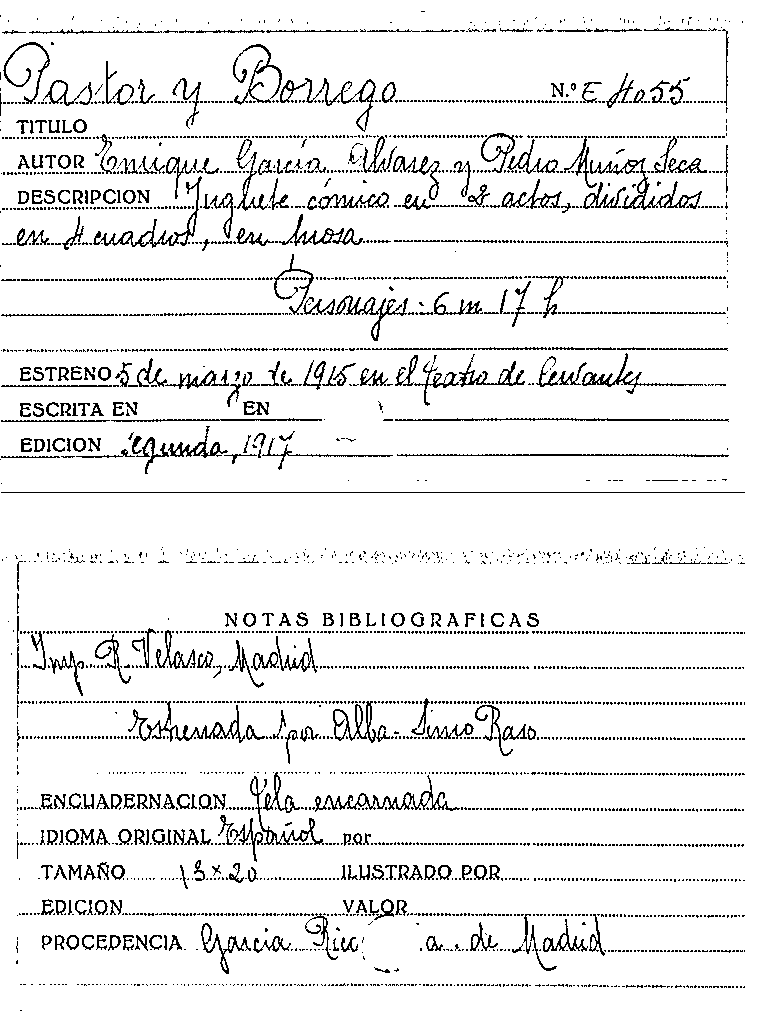 Pastor y Borrego N.º E 4055
TITULO
AUTOR Enrique García Alvarez y Pedro Muñoz Seca
DESCRIPCION Juguete cómico en 2 actos, divididos
en 4 cuadros, en prosa
Personajes: 6 m 17 h
ESTRENO 5 de marzo de 1915 en el teatro de Cervantes
ESCRITA EN EN
EDICION segunda, 1917
NOTAS BIBLIOGRAFICAS
Imp R. Velasco, Madrid
Estrenada por Alba- Simo Raso
ENCUADERNACION tela encarnada
IDIOMA ORIGINAL Español por
TAMAÑO 13 x 20 ILUSTRADO POR
EDICION VALOR
PROCEDENCIA Garcia a. de Madrid